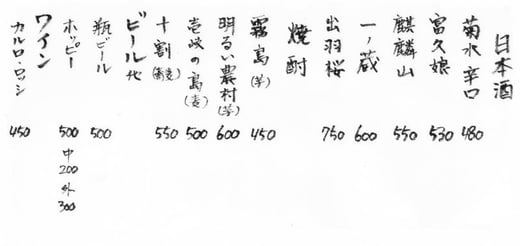 日本酒
菊水 辛口 480
富久娘 530
麒麟山 550
一ノ蔵 600
出羽桜 750
焼酎
霧島(芋) 450
明るい農村(芋) 600
壱岐の島(麦) 500
十割(蕎麦) 550
ビール他
瓶ビール 500
ホッピー 500 中200 外300
ワイン
カルロ・ロッシ 450